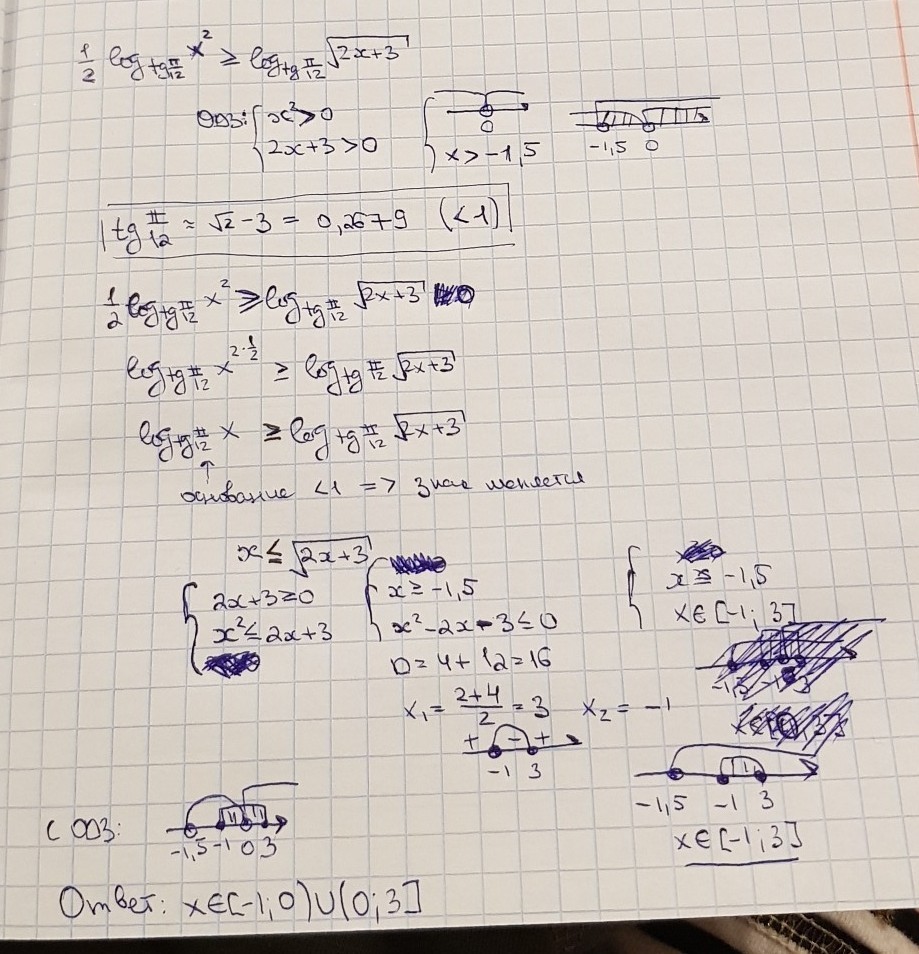 1/2 log_{tg π/12} x² ≥ log_{tg π/12} √(2x+3)
ОДЗ: { x² > 0
{ 0
-1,5 0
2x+3 > 0
x > -1,5
tg π/12 ≈ √2 - 3 = 0,2679 (< 1)
1/2 log_{tg π/12} x² ≥ log_{tg π/12} √(2x+3)
log_{tg π/12} x^{2·1/2} ≥ log_{tg π/12} √(2x+3)
log_{tg π/12} x ≥ log_{tg π/12} √(2x+3)
↑
основание < 1 => знак меняется
x ≤ √(2x+3)
{ 2x+3 ≥ 0
x² ≤ 2x+3
{ x ≥ -1,5
x² - 2x - 3 ≤ 0
D = 4 + 12 = 16
x₁ = (2+4)/2 = 3 x₂ = -1
+ - +
-1 3
{ x ≥ -1,5
x ∈ [-1; 3]
-1,5 -1 3
x ∈ [-1; 3]
С ОДЗ:
-1,5 -1 0 3
Ответ: x ∈ [-1; 0) ∪ (0; 3]